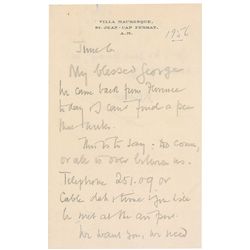 VILLA MAURESQUE,
ST. JEAN - CAP FERRAT,
A.M.
1956
June 6
My blessed George
We came back from Florence
today & I can't find a pen
that writes.
This is to say - Do come,
or all is over between us.
Telephone 251.09 or
Cable date & time & you'll
be met at the air port.
We want you, we need